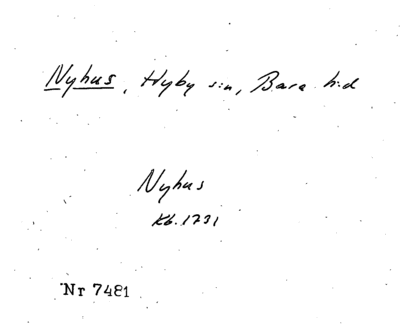 Nyhus, Hyby s:n, Bara h:d
Nyhus
Kb. 1731
Nr 7481